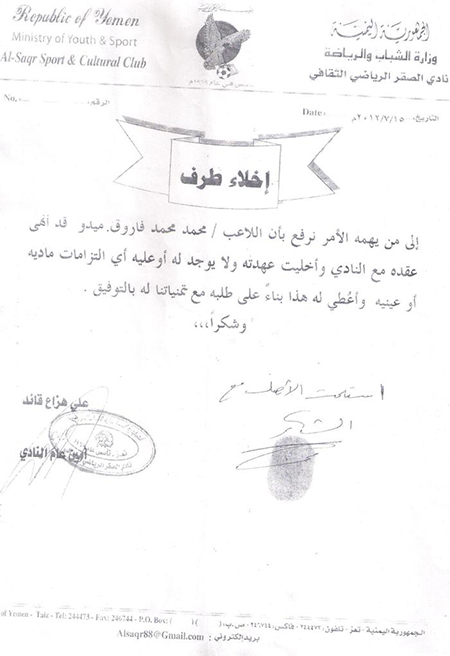 Republic of Yemen
Ministry of Youth & Sport
Al-Saqr Sport & Cultural Club
الجمهورية اليمنية
وزارة الشباب والرياضة
نادي الصقر الرياضي الثقافي
No.
الرقم
Date:
التاريخ: ٢٠١٢/٧/١٥م
إخلاء طرف
إلى من يهمه الأمر نرفع بأن اللاعب / محمد محمد فاروق.ميدو قد أنهى
عقده مع النادي وأخليت عهدته ولا يوجد له أوعليه أي التزامات ماديه
أو عينيه وأعُطي له هذا بناءً على طلبه مع تمنياتنا له بالتوفيق .
وشكراً،،،
استلمت الأصل مع
الشكر
علي هزاع قائد
أمين عام النادي
of Yemen - Taiz - Tel: 244473 - Fax: 246744 - P.O. Box:
الجمهورية اليمنية - تعز - تلفون: ٢٤٤٤٧٣ - فاكس: ٢٤٦٧٤٤ - ص.ب
Alsaqr88@Gmail.com : بريد إلكتروني